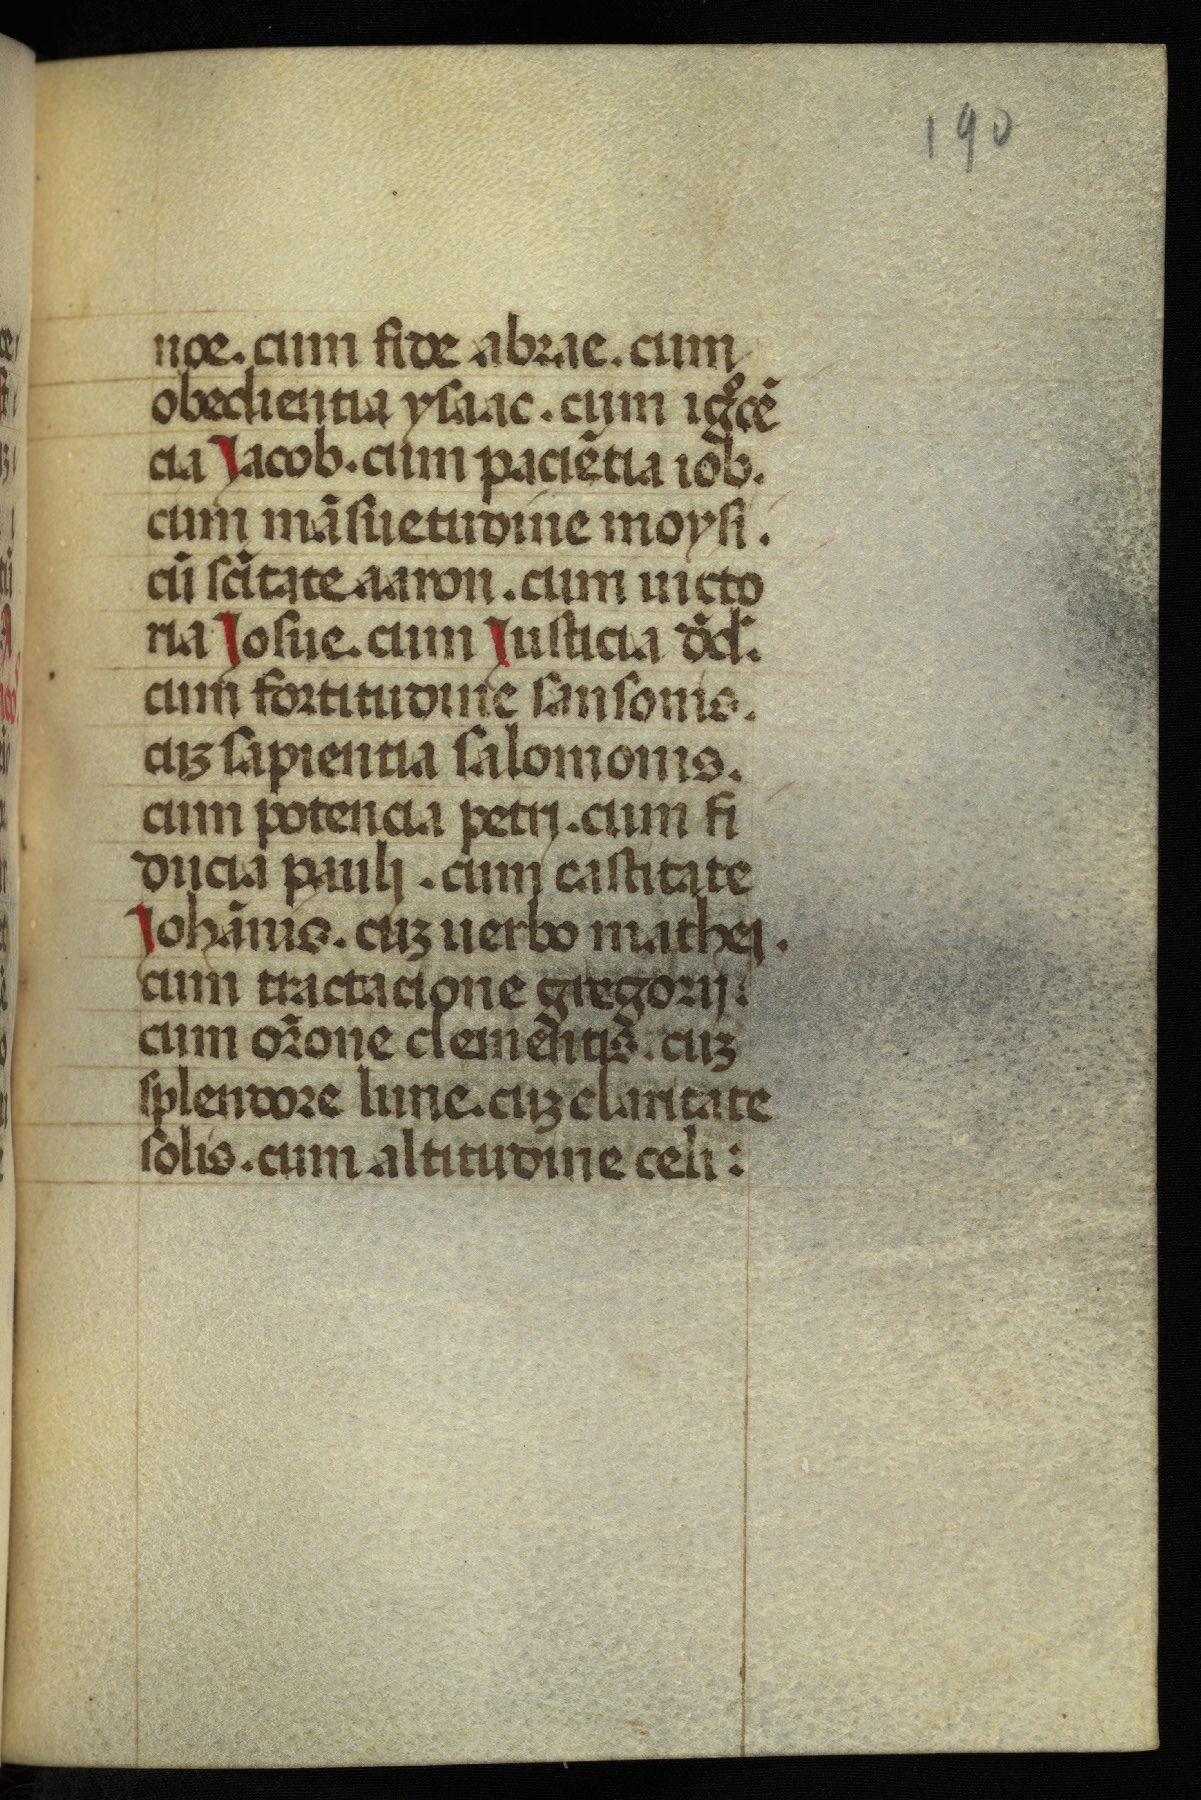 190
noe. cum fide abrae. cum
obediencia ysaac. cum ig̊cē
cia Iacob. cum paciētia iob̄.
cum māsuetudine moysi.
cū sc̄itate aaron. cum uicto
ria Iosue. cum Iusticia dd̄.
cum fortitudine sansonis.
cuꝫ sapientia salomonis.
cum potencia petrj. cum fi
ducia paulj. cum castitate
Iohānis. cuꝫ uerbo mathej.
cum tractacione gregorij:
cum or̄one clementis. cuꝫ
splendore lune. cuꝫ claritate
solis. cum altitudine celi: